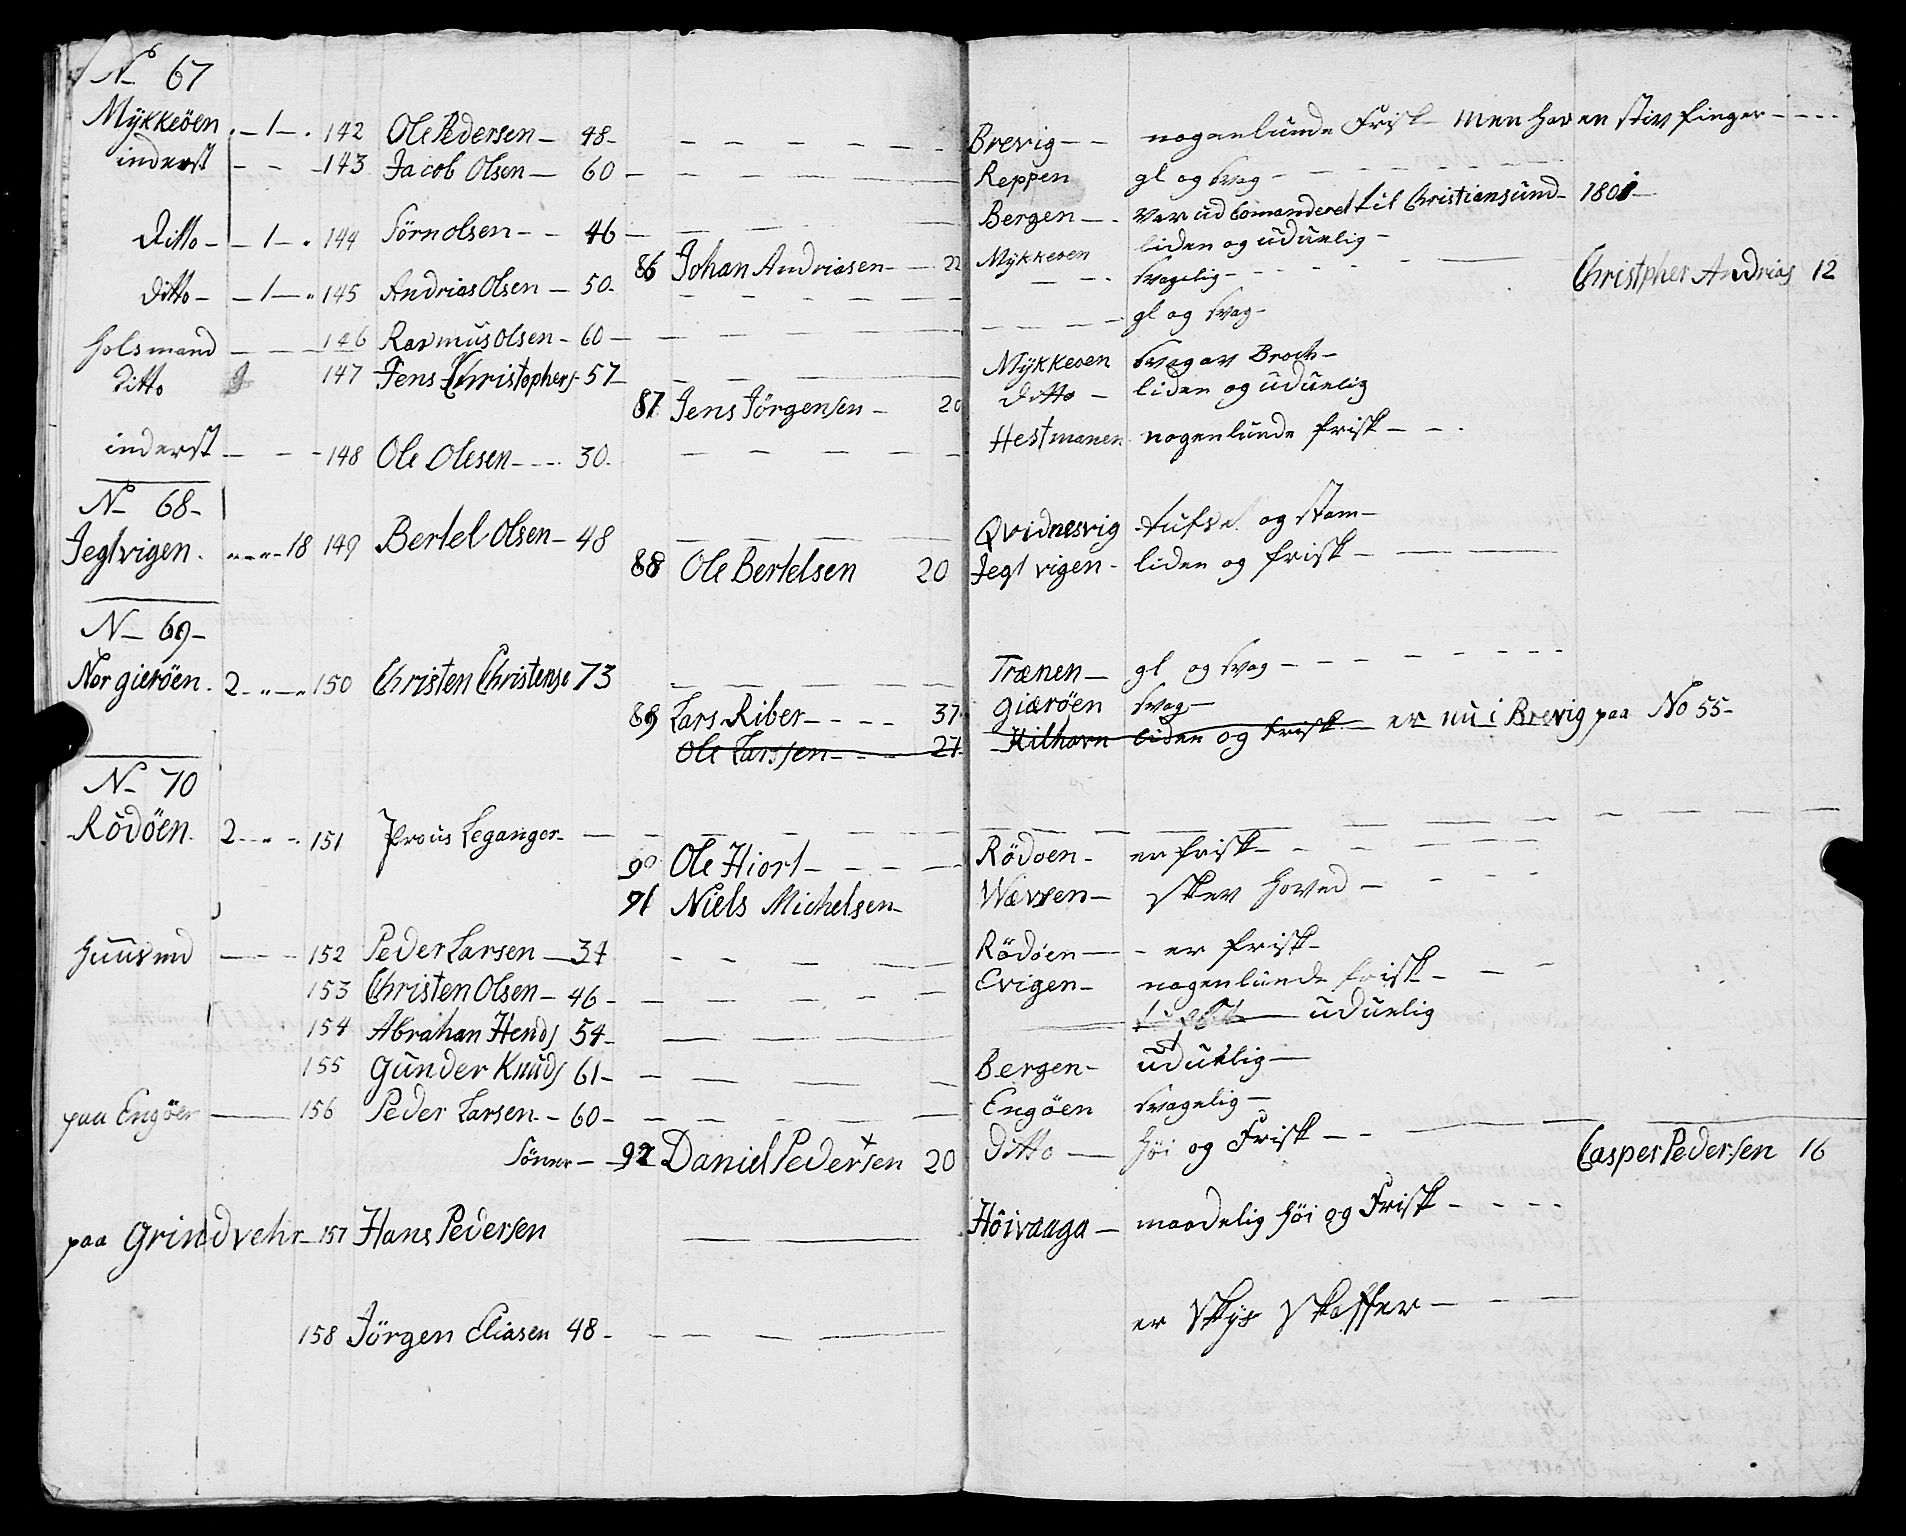 N 67
Mÿkkeöen - 1 - 142 Ole Pedersen - 48 - Brevig - nogenlunde Frisk - men har en stiv finger -
inderst - - 143 Jacob Olsen - 60 - Reppen gl og svag -
Ditto - 1 - 144 Sörn olsen - 46 - Bergen - var ud Comanderet til Christiansund - 1801
86 Johan Andriasen - 22 Mÿkkeoen liden og uduelig -
Ditto - 1 - 145 Andrias Olsen - 50 - svagelig - Christpher Andrias 12
holsmand - 146 Rasmus Olsen - 60 - gl og svag -
Ditto 147 Jens Christophers - 57 - Mÿkkeoen svag av Brock -
87 Jens Jörgensen - 20 Ditto - liden og uduelig
inderst - - 148 Ole Olesen - 30 - Hestmanen nogenlunde frisk -
N 68 -
Jegtvigen - 18 149 Bertel Olsen - 48 - Qvidnesvig og stam -
88 Ole Bertelsen 20 Jegtvigen - liden og frisk -
N 69 -
Nor gieröen 2 - 150 Christen Christense 73 - Trænen - gl og svag -
89 Lars Riber - 37 Giæröen svag -
Ole Larssen - 27 Kilhavn liden og frisk - er nu i Brevig paa No 55 -
N 70
Rödöen 2 - 151 Prous Leganger -
90 Ole Hiort - Rödoen - er frisk -
91 Niels Michelsen - Wævsen - skev hoved -
huusmd - 152 Peder Larsen - 34 - Rödöen - er frisk -
153 Christen Olsen - 46 - Evigen - nogenlunde frisk -
154 Abrahan Hends 54 - uduelig
155 Gunder Knuds 61 - Bergen - uduelig -
paa Engöen - 156 Peder Larsen - 60 - Engöen svagelig -
Söner - 92 Daniel Pedersen 20 Ditto - höi og Frisk - Casper Pedersen 16
paa Grindvehr - 157 Hans Pedersen - Höivaaga - maadelig höi og Frisk -
158 Jörgen Eliasen 48 - er Skÿs skaffer -